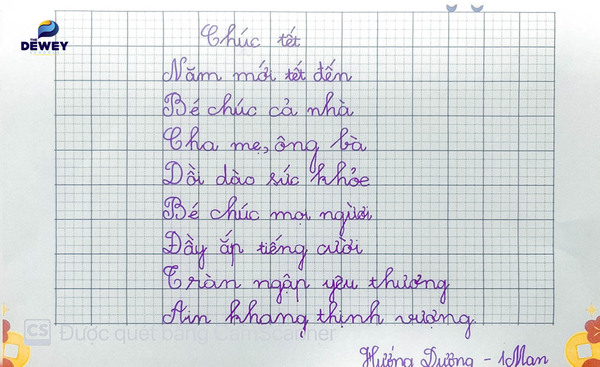 THE DEWEY SCHOOLS
Chúc tết
Năm mới tết đến
Bé chúc cả nhà
Cha mẹ, ông bà
Dồi dào sức khỏe
Bé chúc mọi người
Đầy ắp tiếng cười
Tràn ngập yêu thương
An khang thịnh vượng
CS Được quét bằng CamScanner
Hướng Dương - 1Man